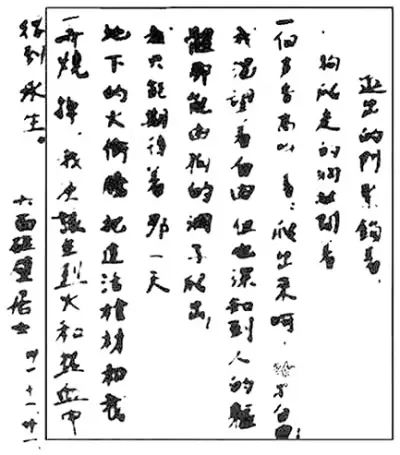 進出的門緊鎖着,
狗爬走的洞敞開着
一個聲音高叫着:爬出來呵,給尔自由!
我渴望着自由 但也深知到人的軀
體那能由狗的洞子爬出!
我只能期待着 那一天
地下的火衝騰 把這活棺材和我
一齊燒掉,我應該在烈火和熱血中
得到永生。
六面碰壁居士 卅一.十一.廿一